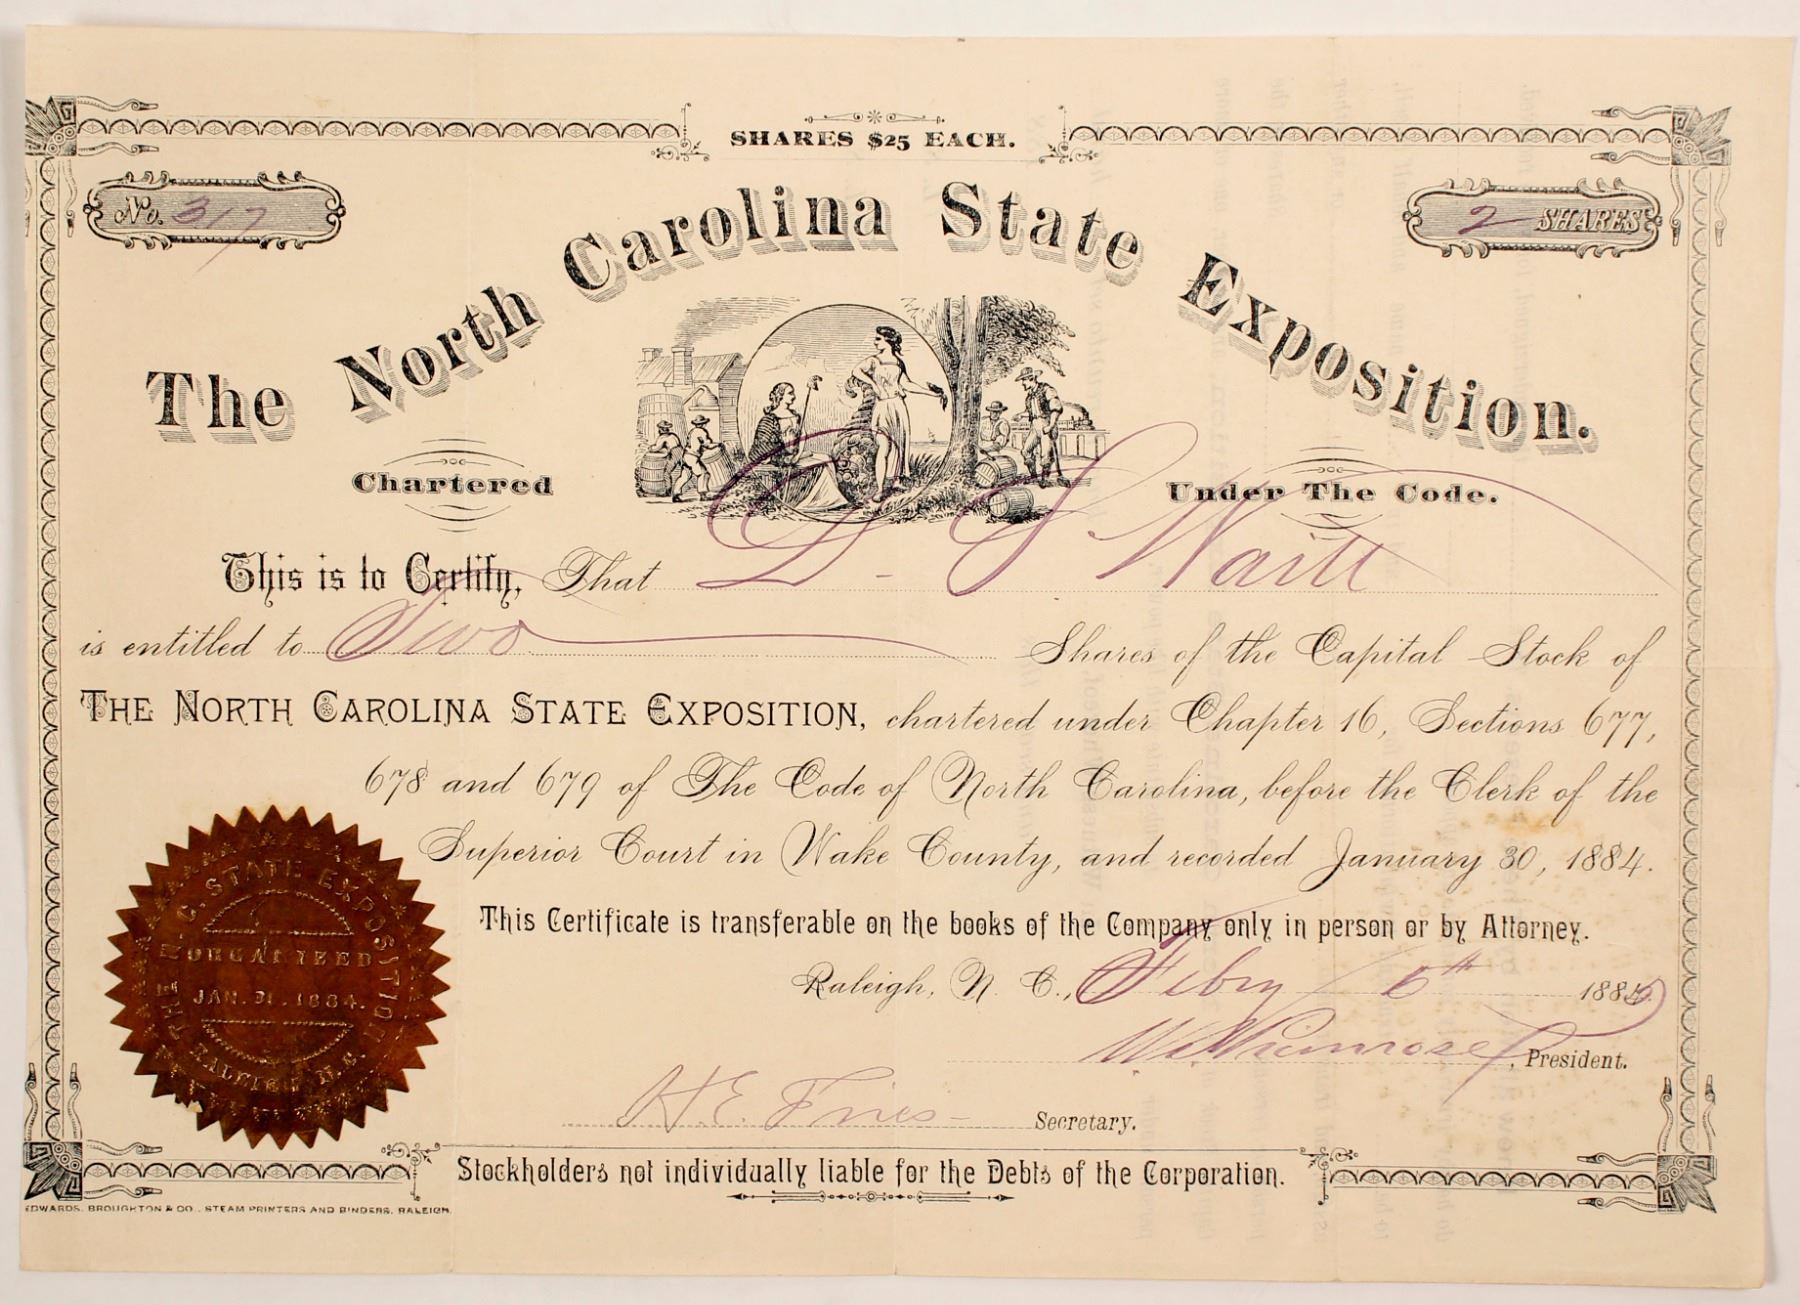 SHARES $25 EACH.
No. 317
2 SHARES
The North Carolina State Exposition.
Chartered
Under The Code.
This is to Certify, That D. S. Waitt
is entitled to Two Shares of the Capital Stock of
THE NORTH CAROLINA STATE EXPOSITION, chartered under Chapter 16, Sections 677,
678 and 679 of The Code of North Carolina, before the Clerk of the
Superior Court in Wake County, and recorded January 30, 1884.
This Certificate is transferable on the books of the Company only in person or by Attorney.
Raleigh, N. C., Febry 6th 1885
W. S. Primrose, President.
H. E. Fries Secretary.
THE N. C. STATE EXPOSITION
ORGANIZED
JAN. 31. 1884.
RALEIGH N. C.
Stockholders not individually liable for the Debts of the Corporation.
EDWARDS, BROUGHTON & CO., STEAM PRINTERS AND BINDERS, RALEIGH.